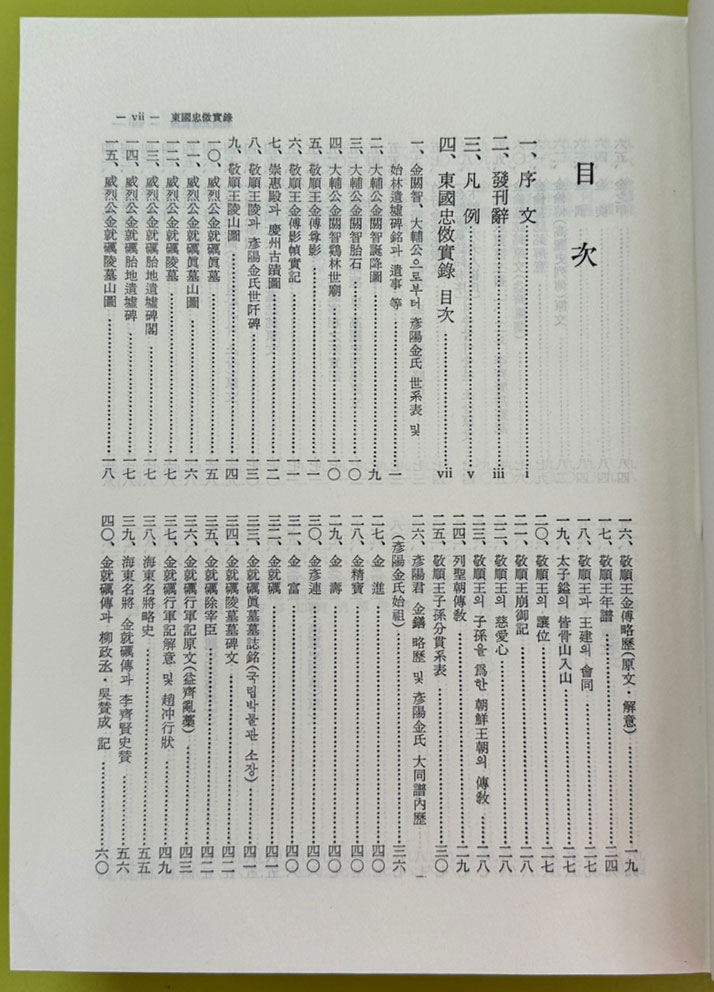 目 次
一、序文 i
二、發刊辭 iii
三、凡例 v
四、東國忠倣實錄 目次 vii
一、金閼智、大輔公으로부터 彦陽金氏 世系表 및
始林遺墟碑銘과 遺事 等 一
二、大輔公金閼智誕降圖 九
三、大輔公金閼智胎石 一〇
四、大輔公金閼智鷄林世廟 一〇
五、敬順王金傅尊影 一一
六、敬順王金傅影幀實記 一一
七、崇惠殿과 慶州古蹟圖 一二
八、敬順王陵과 彦陽金氏世阡碑 一三
九、敬順王陵山圖 一四
一〇、威烈公金就礪眞墓 一五
一一、威烈公金就礪眞墓山圖 一六
一二、威烈公金就礪陵墓 一七
一三、威烈公金就礪胎地遺墟碑閣 一七
一四、威烈公金就礪胎地遺墟碑 一七
一五、威烈公金就礪陵墓山圖 一八
一六、敬順王金傅略歷(原文·解意) 一九
一七、敬順王年譜 二四
一八、敬順王과 王建의 會同 二七
一九、太子鎰의 皆骨山入山 二七
二〇、敬順王의 讓位 二七
二一、敬順王崩御記 二八
二二、敬順王의 慈愛心 二八
二三、敬順王의 子孫을 爲한 朝鮮王朝의 傳敎 二八
二四、列聖朝傳敎 二九
二五、敬順王子孫分貫系表 三〇
二六、彦陽君 金鐥 略歷 및 彦陽金氏 大同譜內歷
(彦陽金氏始祖) 三六
二七、金 進 四〇
二八、金精寶 四〇
二九、金 壽 四〇
三〇、金彦連 四〇
三一、金 富 四〇
三二、金就礪 四一
三三、金就礪眞墓墓誌銘(국립박물관 소장) 四一
三四、金就礪陵墓墓碑文 四二
三五、金就礪除宰臣 四二
三六、金就礪行軍記原文(益齊亂藁) 四三
三七、金就礪行軍記解意 및 趙冲行狀 四九
三八、海東名將略史 五五
三九、海東名將 金就礪傳과 李齊賢史贊 五六
四〇、金就礪傳과 柳政丞·吳贊成 記 六〇
— vii — 東國忠倣實錄